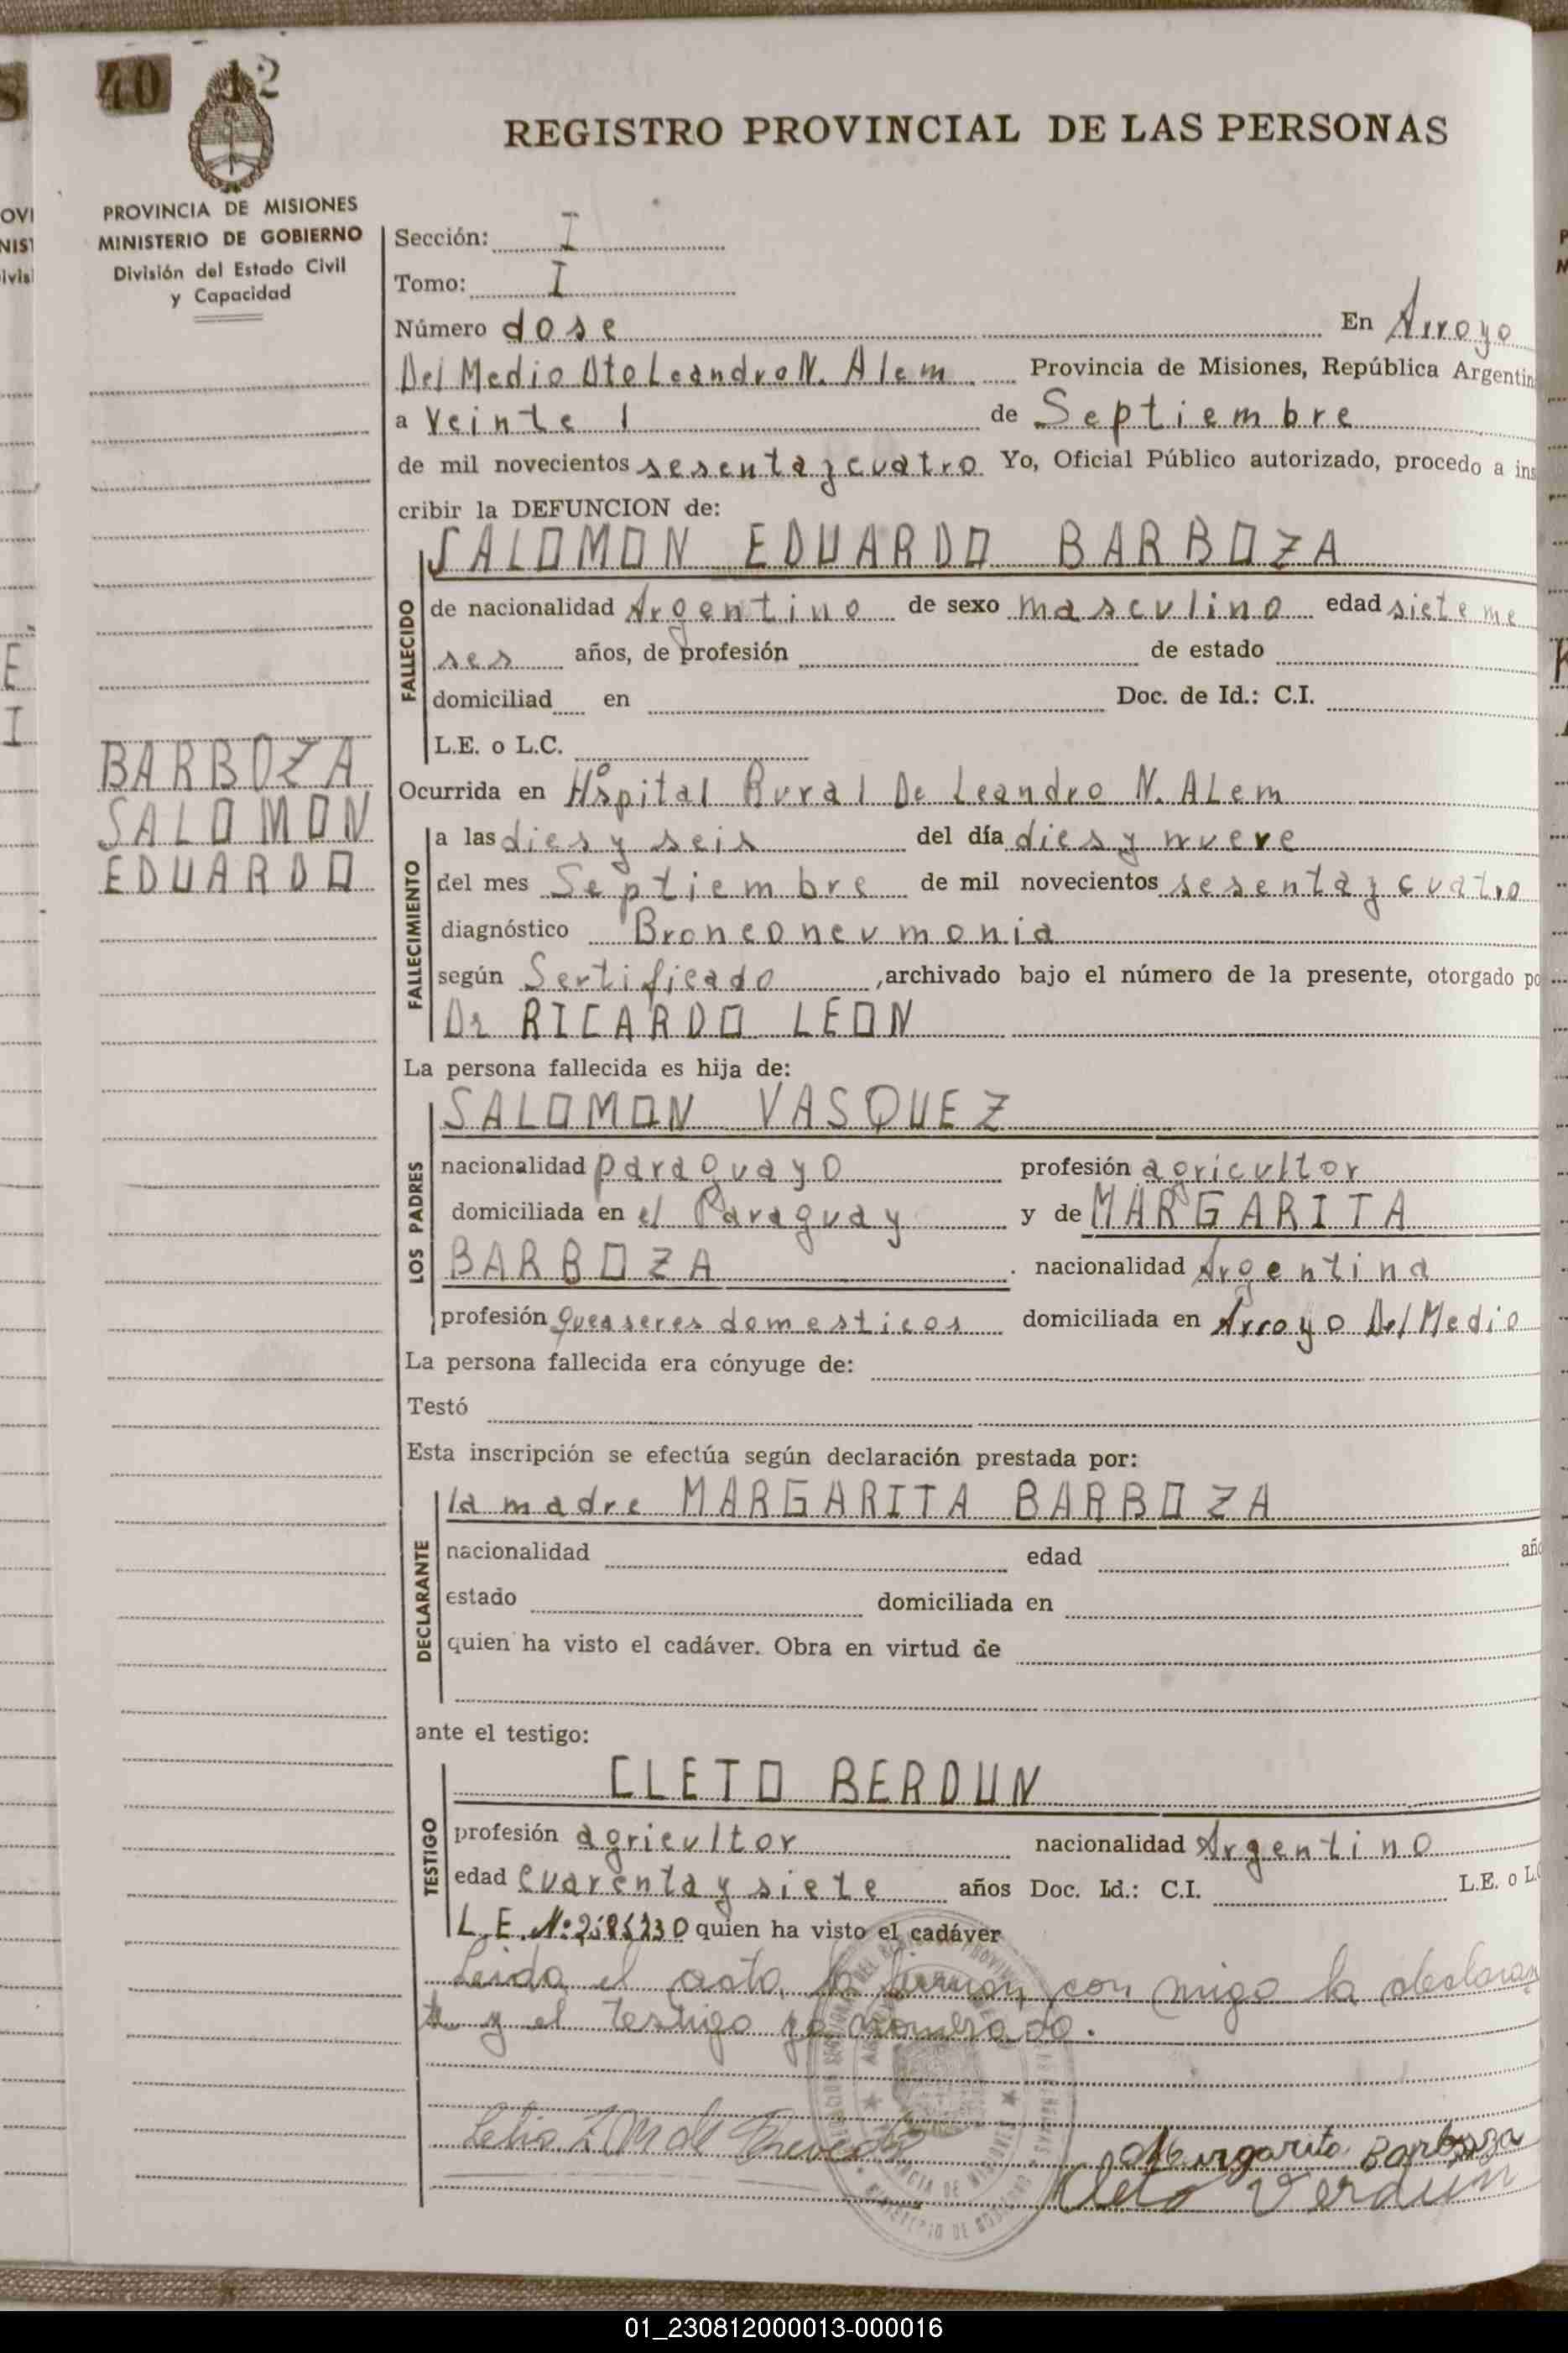 40 12
REGISTRO PROVINCIAL DE LAS PERSONAS
PROVINCIA DE MISIONES
MINISTERIO DE GOBIERNO
División del Estado Civil
y Capacidad
Sección: I
Tomo: I
Número dose En Arroyo
Del Medio Dto Leandro N. Alem Provincia de Misiones, República Argentin
a Veinte 1 de Septiembre
de mil novecientos sesenta y cuatro Yo, Oficial Público autorizado, procedo a ins
cribir la DEFUNCION de:
SALOMON EDUARDO BARBOZA
FALLECIDO
de nacionalidad Argentino de sexo masculino edad siete me
ses años, de profesión de estado
domiciliad en Doc. de Id.: C.I.
L.E. o L.C.
BARBOZA
SALOMON
EDUARDO
Ocurrida en Hospital Rural De Leandro N. ALem
FALLECIMIENTO
a las dies y seis del día dies y nueve
del mes Septiembre de mil novecientos sesenta y cuatro
diagnóstico Bronconeumonia
según Sertificado ,archivado bajo el número de la presente, otorgado po
Dr RICARDO LEON
La persona fallecida es hija de:
LOS PADRES
SALOMON VASQUEZ
nacionalidad paraguayo profesión agricultor
domiciliada en el Paraguay y de MARGARITA
BARBOZA . nacionalidad Argentina
profesión queaseres domesticos domiciliada en Arroyo Del Medio
La persona fallecida era cónyuge de:
Testó
Esta inscripción se efectúa según declaración prestada por:
DECLARANTE
la madre MARGARITA BARBOZA
nacionalidad edad añ
estado domiciliada en
quien ha visto el cadáver. Obra en virtud de
ante el testigo:
TESTIGO
CLETO BERDUN
profesión agricultor nacionalidad Argentino
edad Cuarenta y siete años Doc. Id.: C.I. L.E. o L.
L.E. Nº quien ha visto el cadáver
Leida el acta, la firman con migo la declaran
te y el testigo ya nombrado.
Margarita Barboza
Cleto Verdún
01_230812000013-000016